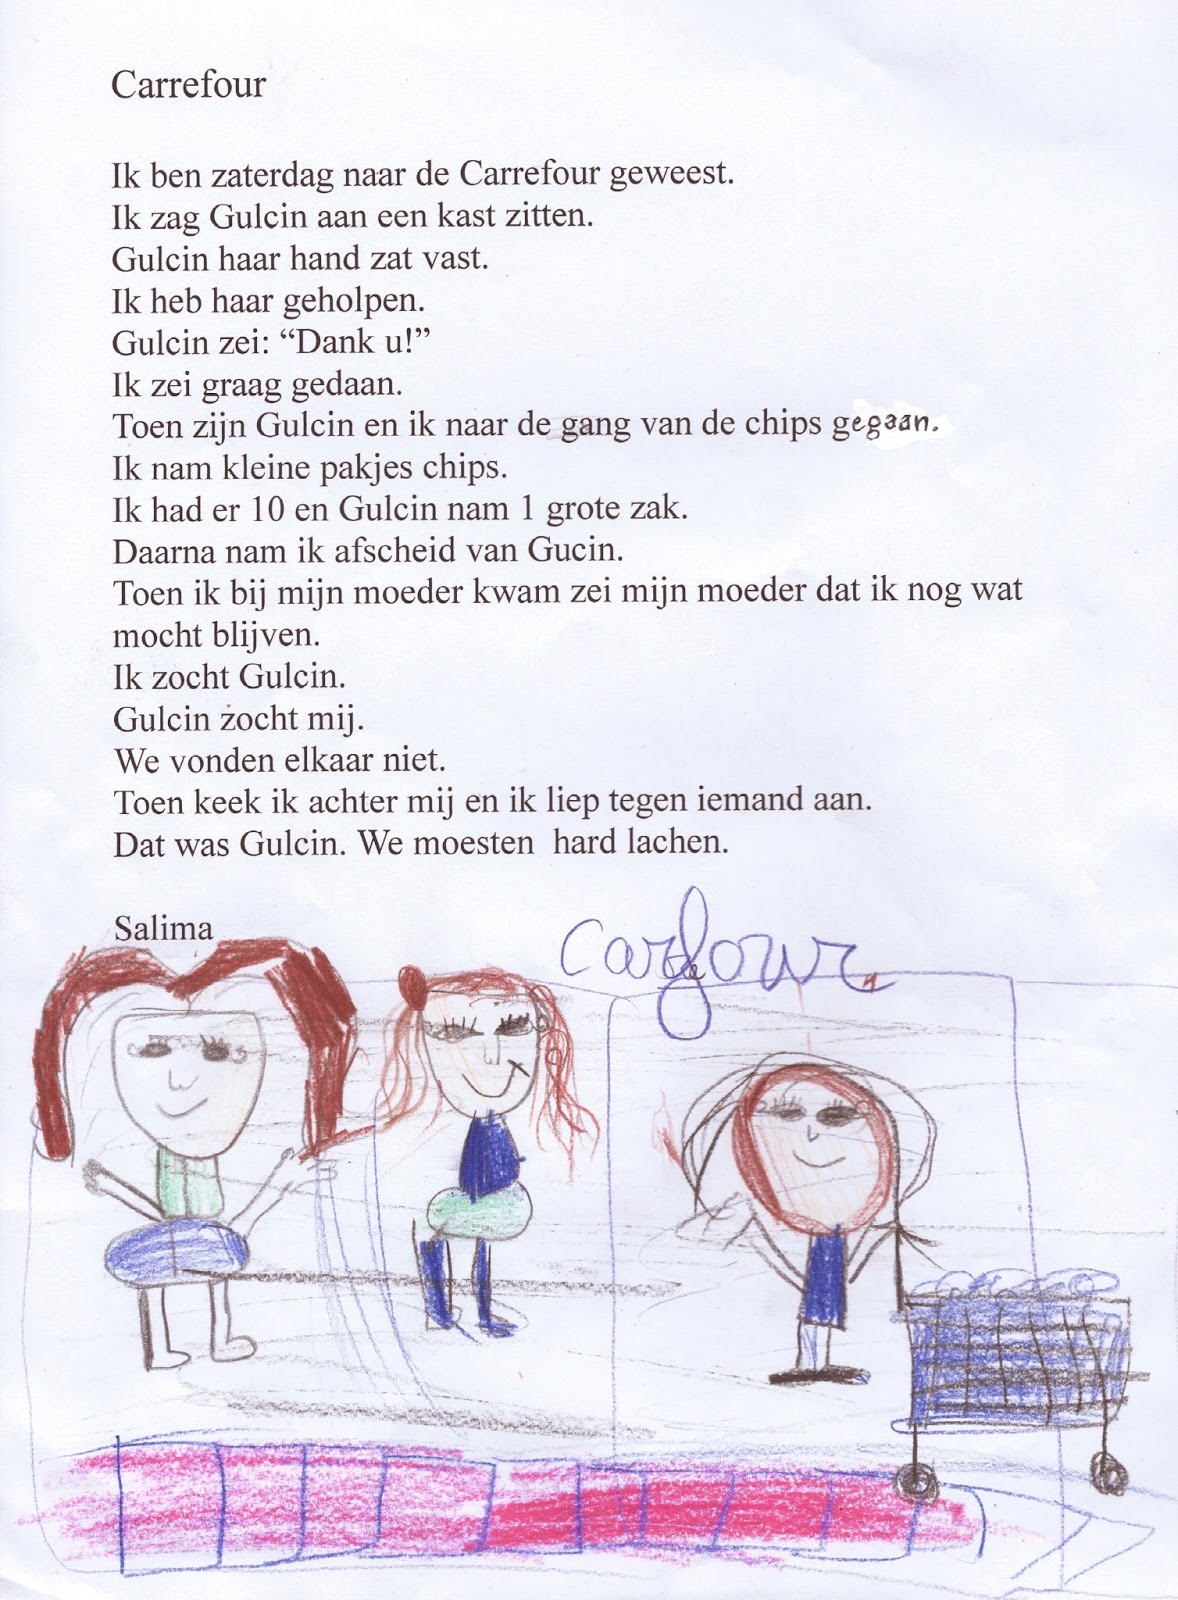 Carrefour
Ik ben zaterdag naar de Carrefour geweest.
Ik zag Gulcin aan een kast zitten.
Gulcin haar hand zat vast.
Ik heb haar geholpen.
Gulcin zei: “Dank u!”
Ik zei graag gedaan.
Toen zijn Gulcin en ik naar de gang van de chips gegaan.
Ik nam kleine pakjes chips.
Ik had er 10 en Gulcin nam 1 grote zak.
Daarna nam ik afscheid van Gucin.
Toen ik bij mijn moeder kwam zei mijn moeder dat ik nog wat
mocht blijven.
Ik zocht Gulcin.
Gulcin zocht mij.
We vonden elkaar niet.
Toen keek ik achter mij en ik liep tegen iemand aan.
Dat was Gulcin. We moesten  hard lachen.
Salima